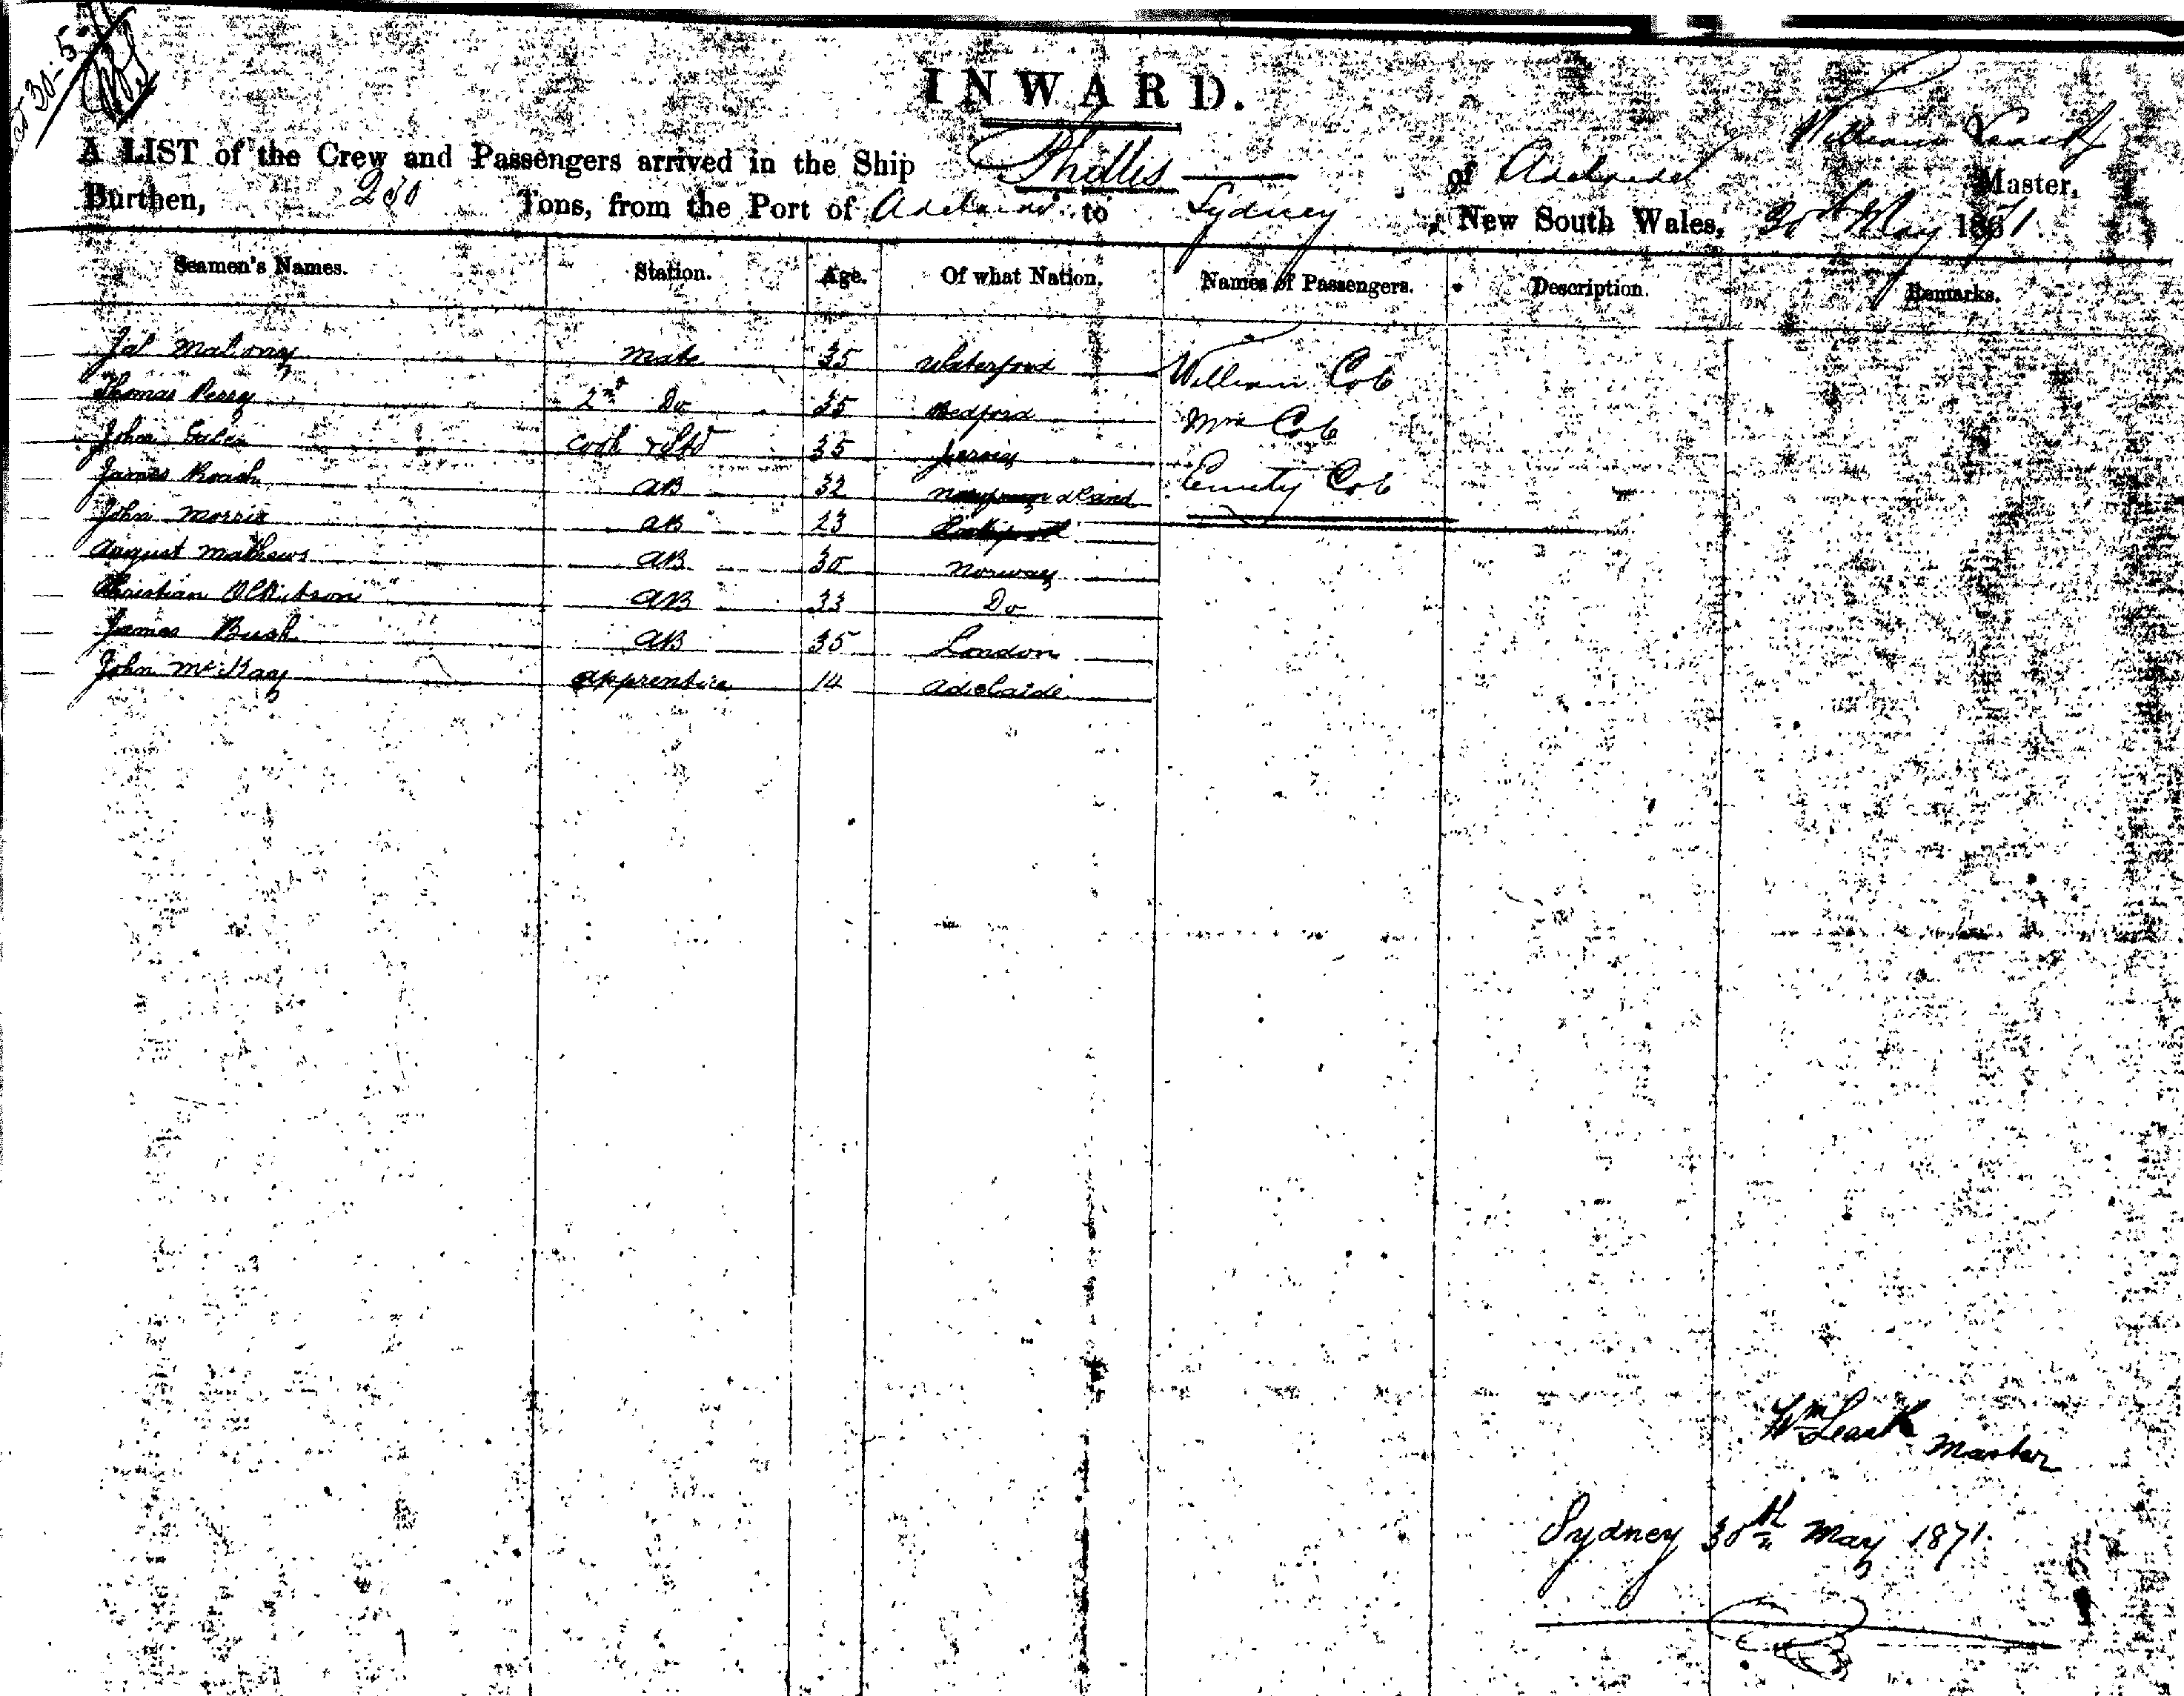 30-5-71
INWARD.
A LIST of the Crew and Passengers arrived in the Ship Phillis of Adelaide William Leask Master,
Burthen, 230 Tons, from the Port of Adelaide to Sydney, New South Wales, 30th May 1871.
Seamen's Names. Station. Age. Of what Nation. Names of Passengers. Description. Remarks.
Jas Malony Mate 35 Waterford William Cob
Thomas Perry 2nd Do 35 Bedford Mrs Cob
John Cook & Std 35 Jersey Emity Cob
James Roach AB 32
John Morris AB 23
August Mathews AB 30 Norway
Christian AB 33 Do
James Bush AB 35 London
John McKay apprentice 14 Adelaide
Wm Leask Master
Sydney 30th May 1871.